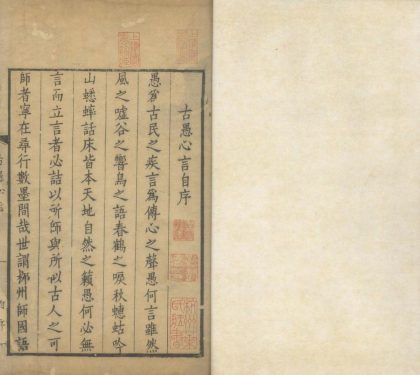 古愚心言自序
愚為古民之疾言為傳心之聲愚何言雖然
風之噓谷之響鳥之語春鶴之唳秋蟪蛄吟
山蟋蟀話床皆本天地自然之籟愚何必無
言而立言者必詰以所師與所似古人之可
師者寧在尋行數墨間哉世謂柳州師國語